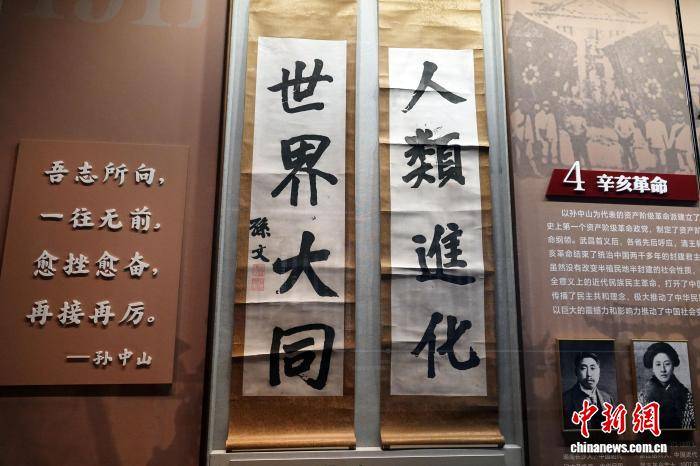 1911
吾志所向，
一往无前，
愈挫愈奋，
再接再厉。
——孙中山
人類進化
世界大同
孫文
4 辛亥革命
以孙中山为代表的资产阶级革命派建立了
史上第一个资产阶级革命政党，制定了资产阶
命纲领。武昌首义后，各省先后响应，清王
亥革命结束了统治中国两千多年的封建君主
虽然没有改变半殖民地半封建的社会性质，
全意义上的近代民族民主革命，打开了中国
传播了民主共和理念，极大推动了中华民
以巨大的震撼力和影响力推动了中国社会变
中新网
chinanews.com